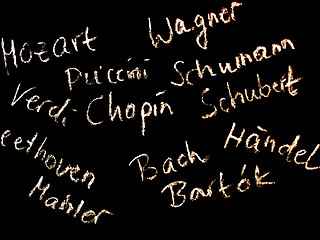 Mozart Wagner
Puccini Schumann
Verdi Chopin Schubert
eethoven Bach Händel
Mahler Bartók